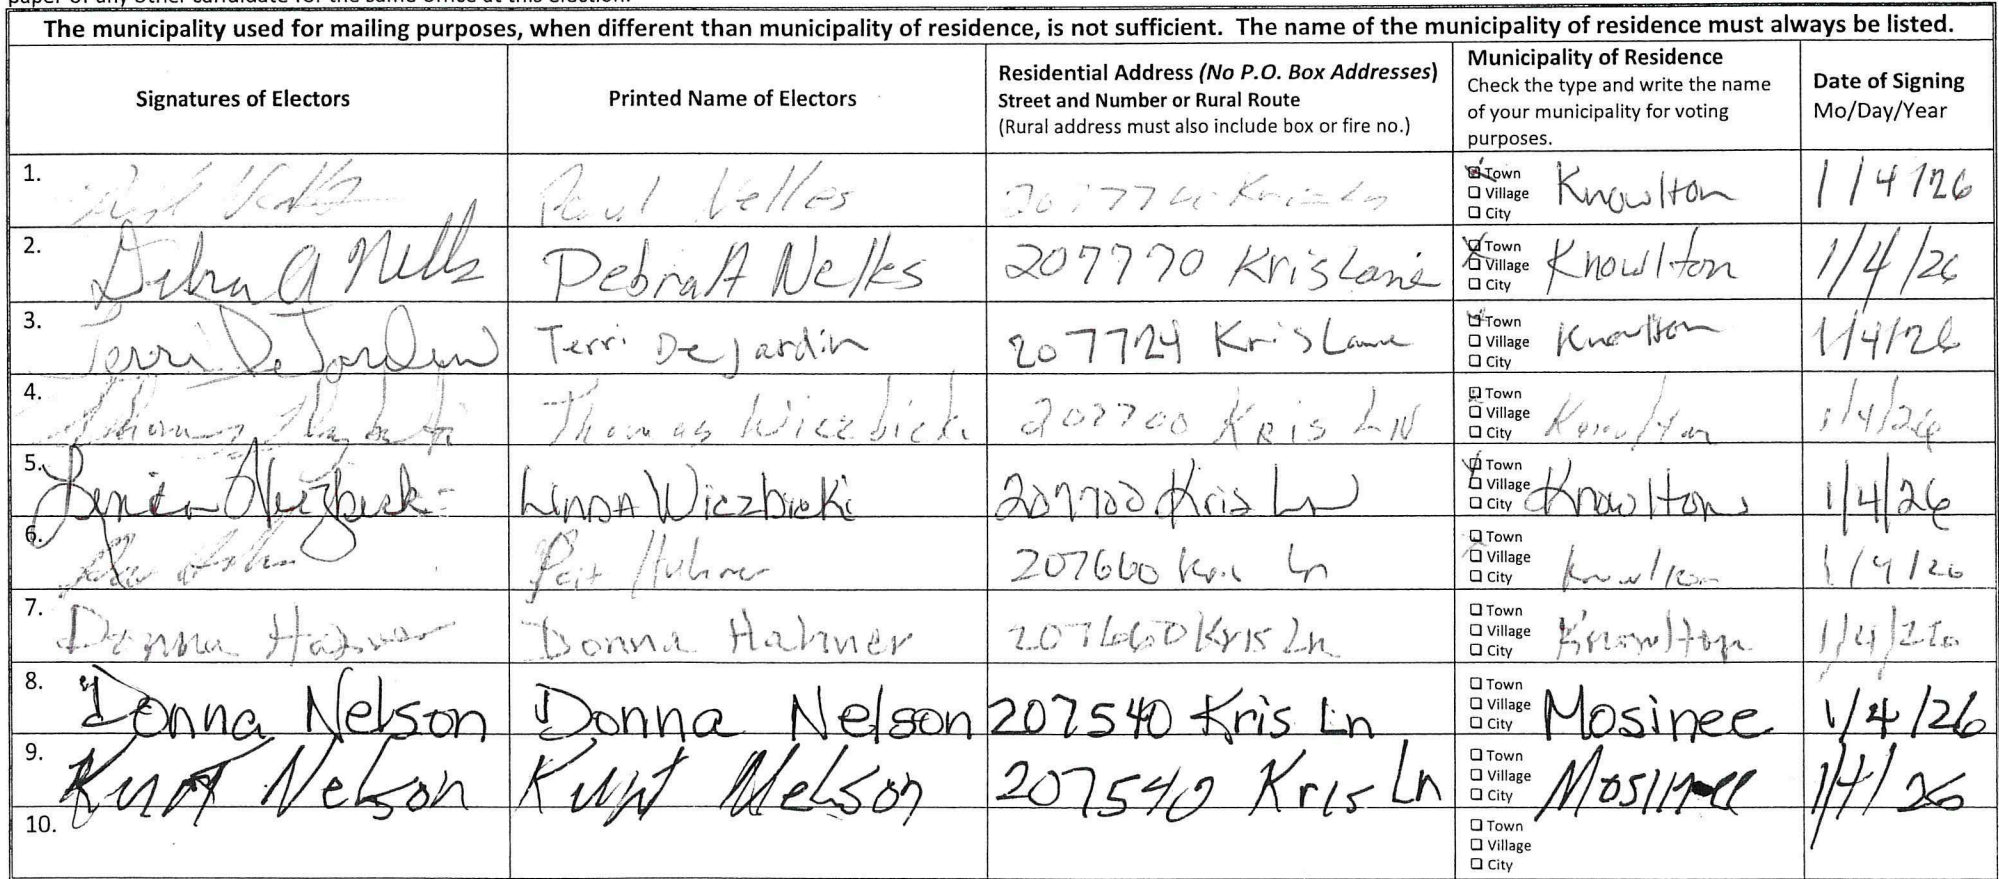 The municipality used for mailing purposes, when different than municipality of residence, is not sufficient. The name of the municipality of residence must always be listed.
Signatures of Electors
Printed Name of Electors
Residential Address (No P.O. Box Addresses)
Street and Number or Rural Route
(Rural address must also include box or fire no.)
Municipality of Residence
Check the type and write the name
of your municipality for voting
purposes.
Date of Signing
Mo/Day/Year
1. Paul Nelles Kris Ln Town Village City Knowlton 1/4/26
2. Debra A Nelles Debra A Nelles 207770 Kris Lane Town Village City Knowlton 1/4/26
3. Terri DeJardin Terri DeJardin 207724 Kris Lane Town Village City Knowlton 1/4/26
4. Thomas Thomas Wiczbicki 207700 Kris LN Town Village City Knowlton 1/4/26
5. Linda Wiczbicki Linda Wiczbicki 207700 Kris Ln Town Village City Knowlton 1/4/26
6. 207660 Kris Ln Town Village City Knowlton 1/4/26
7. Donna Hahner Donna Hahner 207660 Kris Ln Town Village City Knowlton 1/4/26
8. Donna Nelson Donna Nelson 207540 Kris Ln Town Village City Mosinee 1/4/26
9. Kurt Nelson Kurt Nelson 207540 Kris Ln Town Village City Mosinee 1/4/26
10. Town Village City